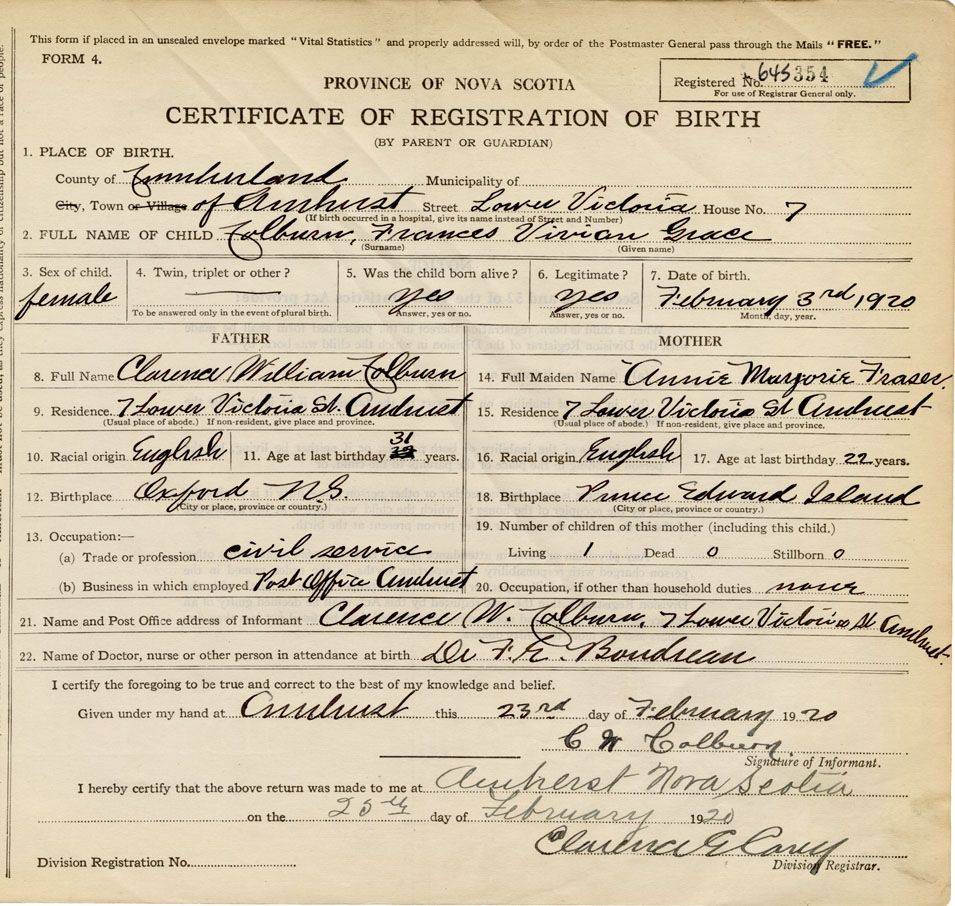 This form if placed in an unsealed envelope marked "Vital Statistics" and properly addressed will, by order of the Postmaster General pass through the Mails "FREE."
FORM 4.
Registered No. 645354
For use of Registrar General only.
PROVINCE OF NOVA SCOTIA
CERTIFICATE OF REGISTRATION OF BIRTH
(BY PARENT OR GUARDIAN)
1. PLACE OF BIRTH.
County of Cumberland Municipality of
City, Town or Village of Amherst Street Lower Victoria House No. 7
(If birth occurred in a hospital, give its name instead of Street and Number)
2. FULL NAME OF CHILD Colburn, Frances Vivian Grace
(Surname) (Given name)
3. Sex of child. 4. Twin, triplet or other? 5. Was the child born alive? 6. Legitimate? 7. Date of birth.
female yes yes February 3rd, 1920
To be answered only in the event of plural birth. Answer, yes or no. Answer, yes or no. Month, day, year.
FATHER MOTHER
8. Full Name Clarence William Colburn 14. Full Maiden Name Annie Marjorie Fraser.
9. Residence. 7 Lower Victoria St. Amherst 15. Residence 7 Lower Victoria St Amherst
(Usual place of abode.) If non-resident, give place and province. (Usual place of abode.) If non-resident, give place and province.
10. Racial origin English 11. Age at last birthday 31 years. 16. Racial origin English 17. Age at last birthday 22 years.
12. Birthplace Oxford N.S. 18. Birthplace Prince Edward Island
(City or place, province or country.) (City or place, province or country.)
13. Occupation:— 19. Number of children of this mother (including this child.)
(a) Trade or profession civil service Living 1 Dead 0 Stillborn 0
(b) Business in which employed Post Office Amherst 20. Occupation, if other than household duties none
21. Name and Post Office address of Informant Clarence W. Colburn, 7 Lower Victoria St Amherst.
22. Name of Doctor, nurse or other person in attendance at birth Dr F. E. Boudreau
I certify the foregoing to be true and correct to the best of my knowledge and belief.
Given under my hand at Amherst this 23rd day of February 1920
C W Colburn
Signature of Informant.
I hereby certify that the above return was made to me at Amherst Nova Scotia
on the 25th day of February 1920
Clarence E Casey
Division Registrar.
Division Registration No.